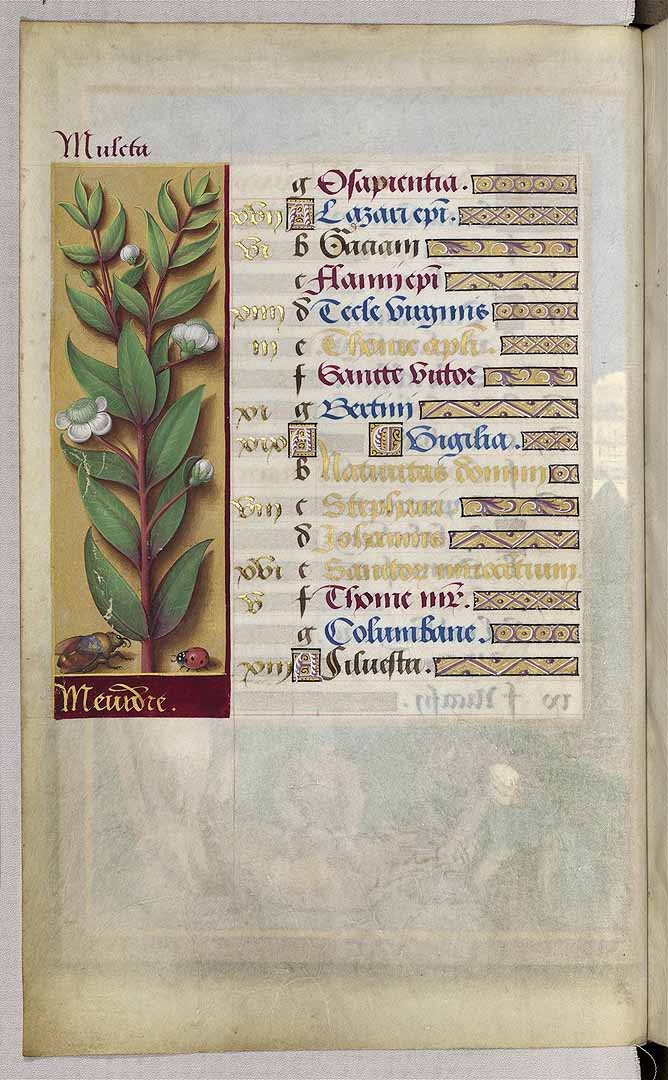 Muscta
g O sapientia.
xvii A Lazari epi.
vi b Gaciani
c Flauii epi
xiiii d Tecle virginis
iii e Thome apli.
f Sancte victor
xi g Bertini
xix A Vigilia.
b Natiuitas domini
viii c Stephani
d Johannis
xvi e Sanctor innocentium
v f Thome mr.
g Columbane.
xiii A Siluest
Meurdre.